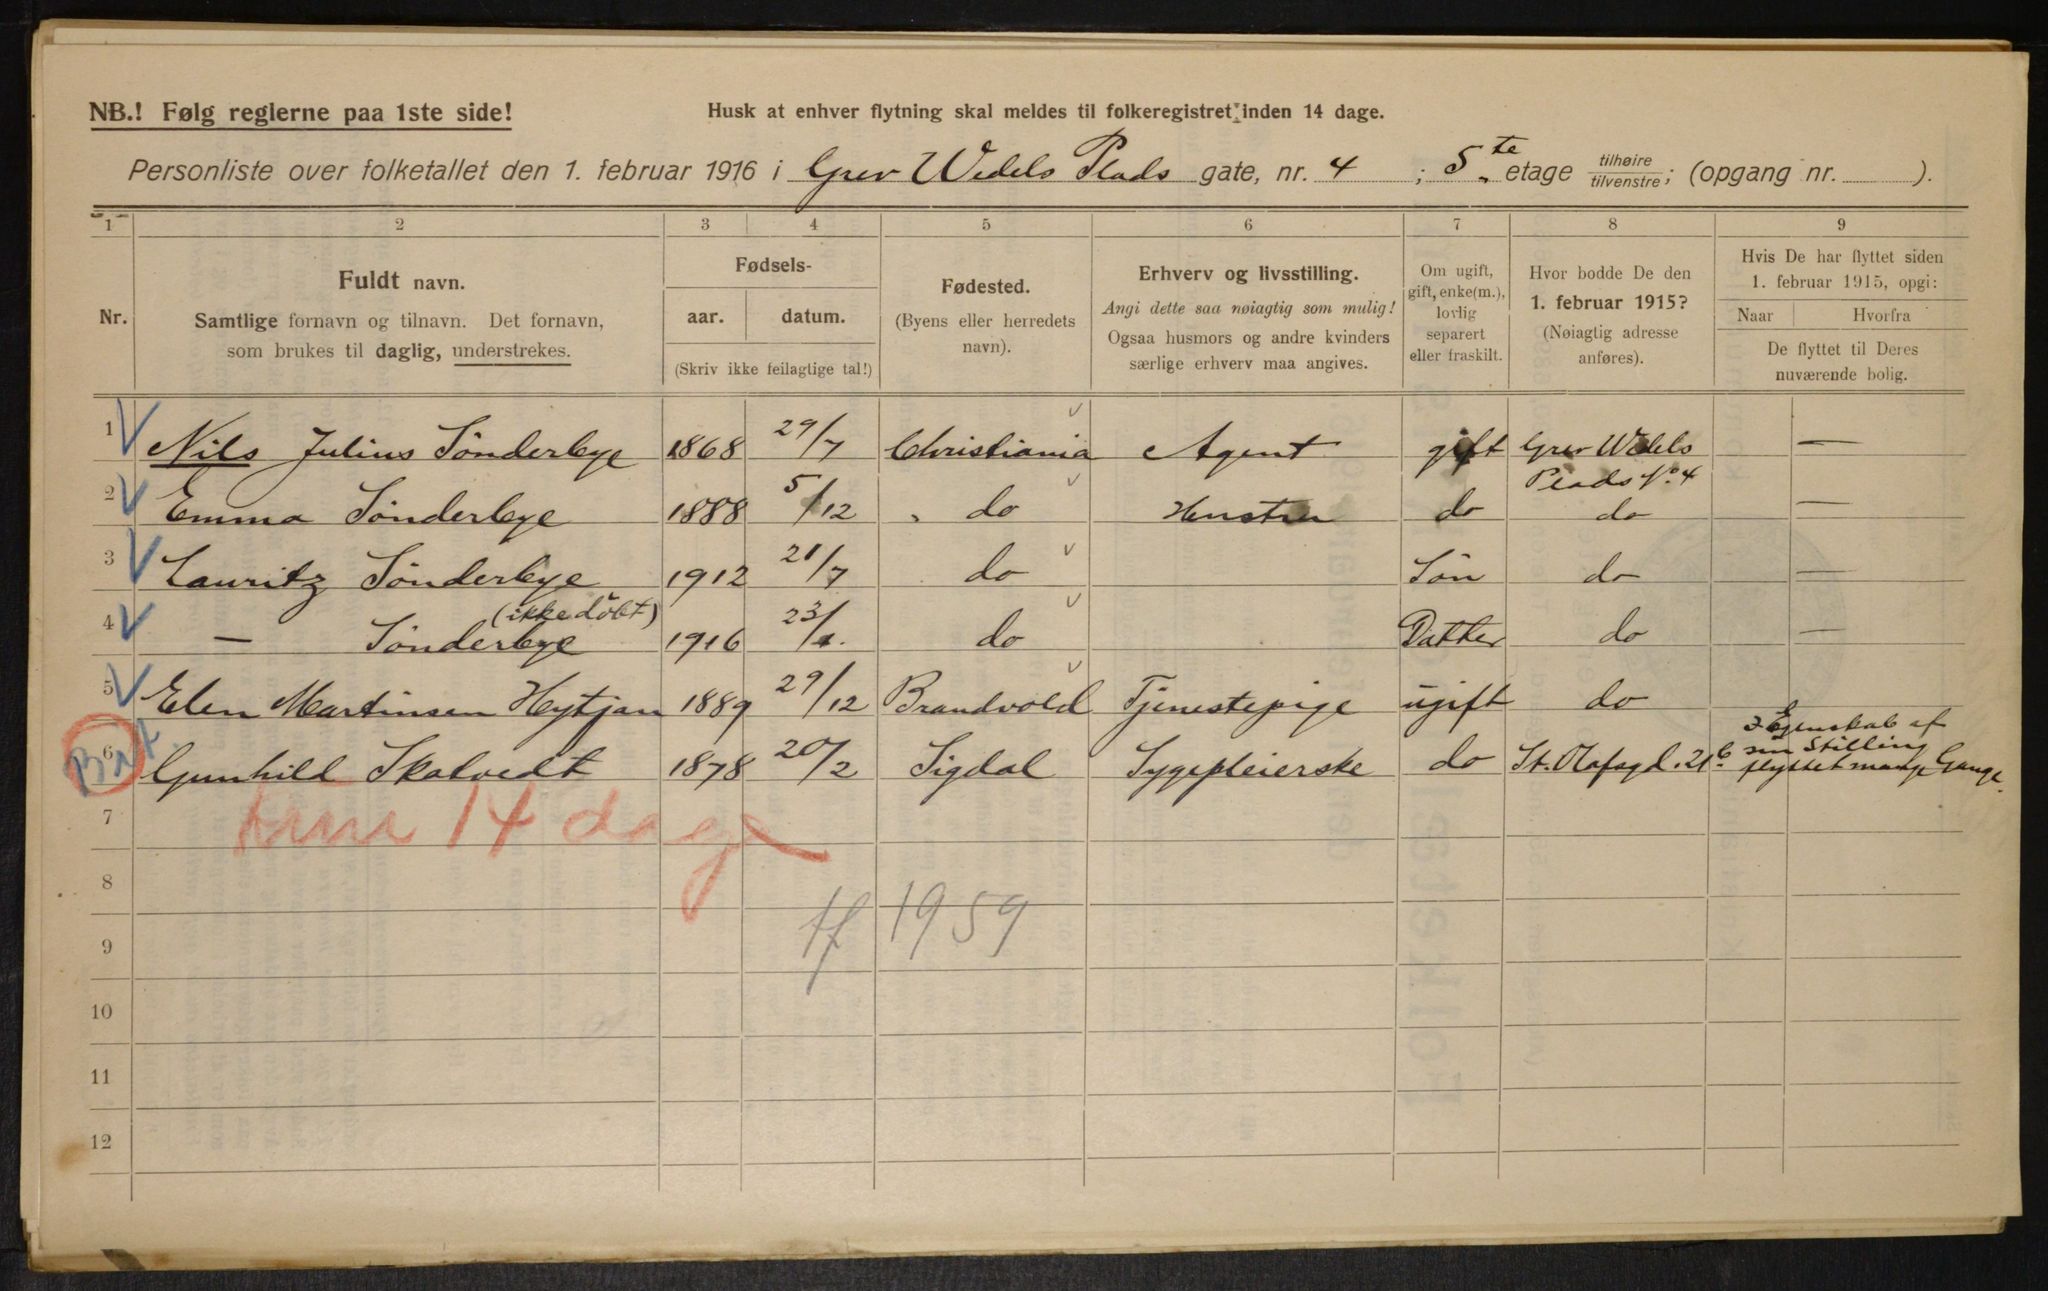 NB.! Følg reglerne paa 1ste side!
Husk at enhver flytning skal meldes til folkeregistret inden 14 dage.
Personliste over folketallet den 1. februar 1916 i Grev Wedels Plads gate, nr. 4 ; 5te etage tilhøire/tilvenstre; (opgang nr. ).
1 2 3 4 5 6 7 8 9
Nr.
Fuldt navn.
Samtlige fornavn og tilnavn. Det fornavn,
som brukes til daglig, understrekes.
Fødsels-
aar. datum.
(Skriv ikke feilagtige tal!)
Fødested.
(Byens eller herredets
navn).
Erhverv og livsstilling.
Angi dette saa nøiagtig som mulig!
Ogsaa husmors og andre kvinders
særlige erhverv maa angives.
Om ugift,
gift, enke(m.),
lovlig
separert
eller fraskilt.
Hvor bodde De den
1. februar 1915?
(Nøiagtig adresse
anføres).
Hvis De har flyttet siden
1. februar 1915, opgi:
Naar Hvorfra
De flyttet til Deres
nuværende bolig.
1 Nils Julius Sönderbye 1868 29/7 Christiania Agent gift Grev Wedels Plads No. 4 —
2 Emma Sönderbye 1888 5/12 do Hustru do do —
3 Lauritz Sönderbye 1912 21/7 do Sön do —
4 — Sönderbye (ikke döbt) 1916 23/1. do Datter do —
5 Elen Martinsen Hytjan 1889 29/12 Brandvold Tjenestepige ugift do
6 Gunhild Skatvedt 1878 20/2 Sigdal Sygepleierske do St. Olafsgd. 21b I Egenskab af
sin Stilling
flyttet mange Gange.
7
14 dage
8
9 1959
10
11
12